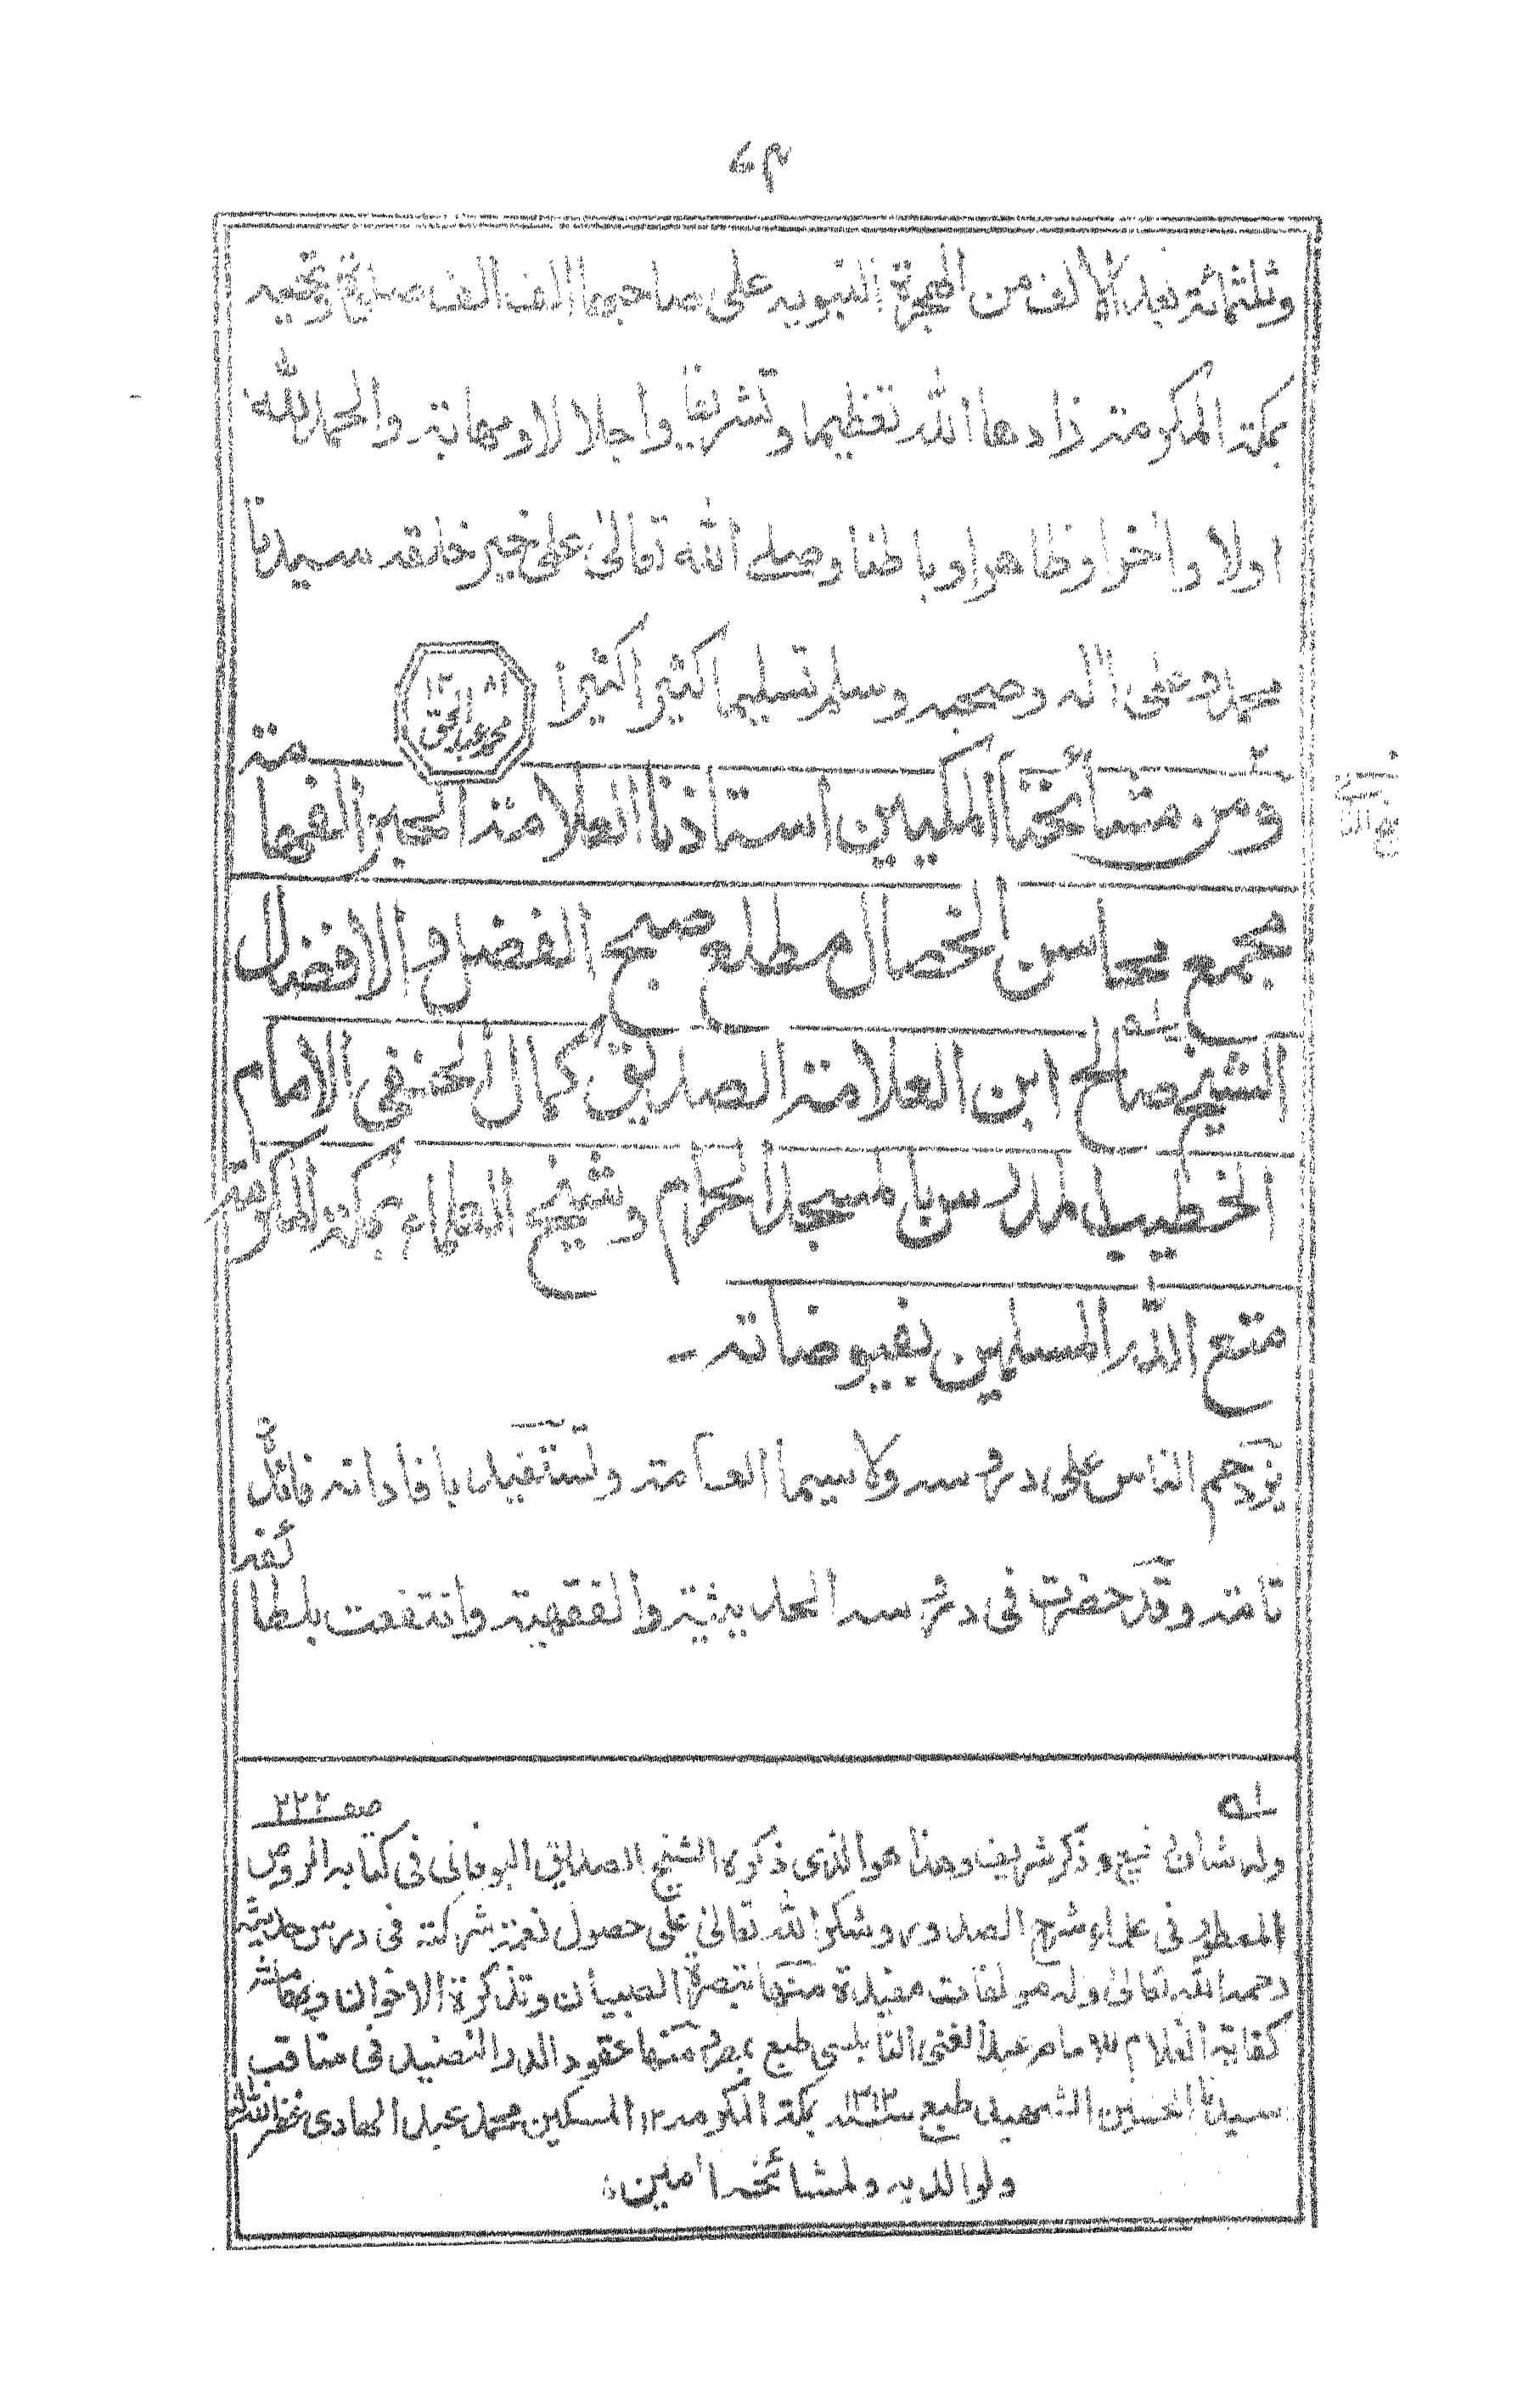 ٧٤
وثلثمائة بعد الالف من الهجرة النبوية على صاحبها الف الف صلوة وتحية
بمكة المكرمة زادها الله تعظيما وتشريفا واجلالا ومهابة والحمد لله
اولا واٰخرا وظاهرا وباطنا وصلى الله تعالىٰ على خير خلقه سيدنا
محمد وعلى اٰله وصحبه وسلم تسليما كثيرا كثيرا
محمد عبد الحق ١٢٨١
ومن مشائخنا المكيين استاذنا العلامة الحبر الفهامة
مجمع محاسن الخصال مطلع صبح الفضل والافضال
الشيخ صالح ابن العلامة الصديق كمال الحنفي الامام
الخطيب المدرس بالمسجد الحرام وشيخ العلماء بمكة المكرمة
متع الله المسلمين بفيوضاته -
يزدحم الناس على درسه ولا سيما العامة وتستفيد بافاداته فائدة
تامة وقد حضرت في درسه الحديثية والفقهية وانتفعت بلطائفه
١ه صفـ ٢٢٢
وله شان وذكر شريف وهذا هو الذى ذكره الشيخ الصديق البوفانى فى كتابه الروض
المعطور فى علماء شرح الصدور وشكر الله تعالىٰ على حصول نعمة شركته فى درس حديثه
رحمه الله تعالىٰ وله مولفات مفيدة منها تبصرة الصبيان وتذكرة الاخوان
كفاية الغلام للامام عبد الغنى النابلسى طبع بمصر منها عقود الدر النضيد فى مناقب
سيدنا الحسين الشهيد طبع سنة ١٣١٢ بمكة المكرمة ١٢ المسكين محمد عبد الهادى غفر الله له
ولوالديه ولمشائخه اٰمين